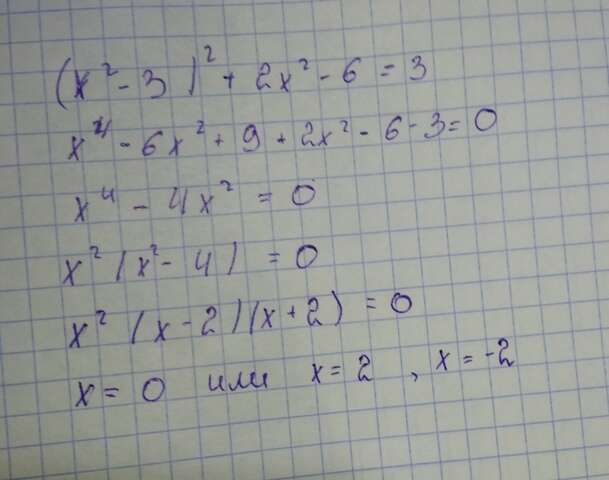 (x² - 3)² + 2x² - 6 = 3
x⁴ - 6x² + 9 + 2x² - 6 - 3 = 0
x⁴ - 4x² = 0
x² (x² - 4) = 0
x² (x - 2)(x + 2) = 0
x = 0 или x = 2 , x = -2